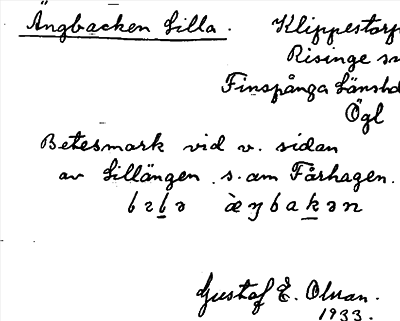 Ängbacken Lilla. Klippestorp
Risinge sn
Finspånga Länshd
Ögl
Betesmark vid v. sidan
av Lillängen s. om Fårhagen.
Gustaf E. Olsson.
1933.